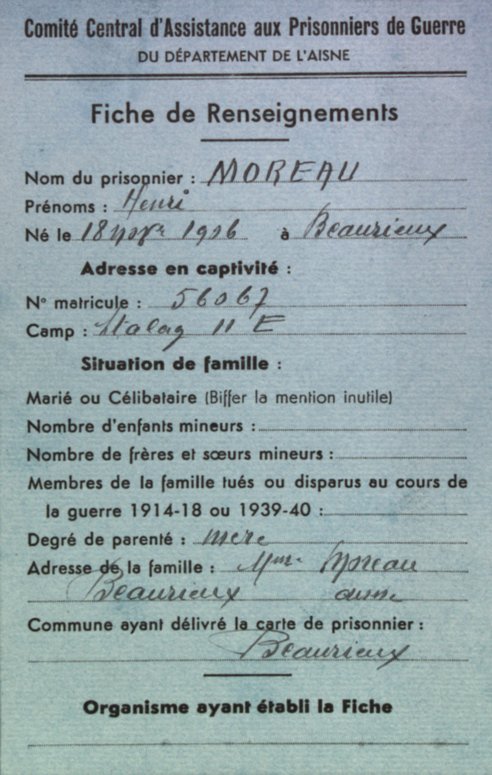 Comité Central d'Assistance aux Prisonniers de Guerre
DU DÉPARTEMENT DE L'AISNE
Fiche de Renseignements
Nom du prisonnier : MOREAU
Prénoms : Henri
Né le 18 1906 à Beaurieux
Adresse en captivité :
N° matricule : 56067
Camp : Stalag II E
Situation de famille :
Marié ou Célibataire (Biffer la mention inutile)
Nombre d'enfants mineurs :
Nombre de frères et sœurs mineurs :
Membres de la famille tués ou disparus au cours de
la guerre 1914-18 ou 1939-40 :
Degré de parenté : mere
Adresse de la famille : Mme Moreau
Beaurieux aisne
Commune ayant délivré la carte de prisonnier :
Beaurieux
Organisme ayant établi la Fiche